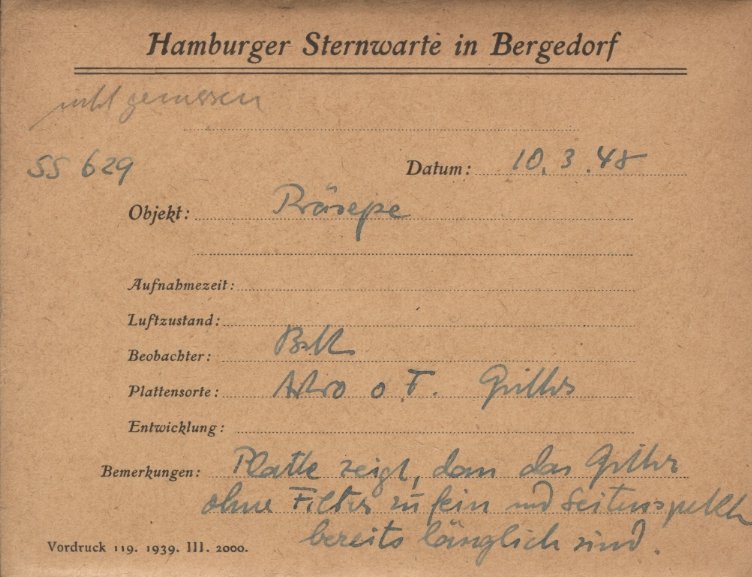 Hamburger Sternwarte in Bergedorf
nicht gemessen
SS 629
Datum: 10.3.48
Objekt: Präsepe
Aufnahmezeit:
Luftzustand:
Beobachter:
Plattensorte: Astro o F. Gitter
Entwicklung:
Bemerkungen: Platte zeigt, dass das Gitter
ohne Filter zu fein und Seitenspektr
bereits länglich sind.
Vordruck 119. 1939. III. 2000.